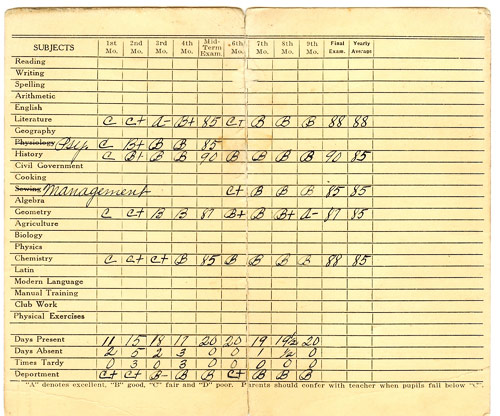 SUBJECTS 1st Mo. 2nd Mo. 3rd Mo. 4th Mo. Mid-Term Exam. 6th Mo. 7th Mo. 8th Mo. 9th Mo. Final Exam. Yearly Average
Reading
Writing
Spelling
Arithmetic
English
Literature C C+ A- B+ 85 C+ B B B 88 88
Geography
Physiology Psy. C B+ B B 85
History C B+ B B 90 B B B B 90 85
Civil Government
Cooking
Sewing Management C+ B B B 85 85
Algebra
Geometry C C+ B B 87 B+ B B+ A- 87 85
Agriculture
Biology
Physics
Chemistry C C+ C+ B 85 B B B B 88 85
Latin
Modern Language
Manual Training
Club Work
Physical Exercises
Days Present 11 15 18 17 20 20 19 19½ 20
Days Absent 2 5 2 3 0 0 1 ½ 0
Times Tardy 0 3 0 3 0 0 0 0 0
Deportment C+ C+ B- B B C+ B B B
"A" denotes excellent, "B" good, "C" fair and "D" poor. Parents should confer with teacher when pupils fall below "C".